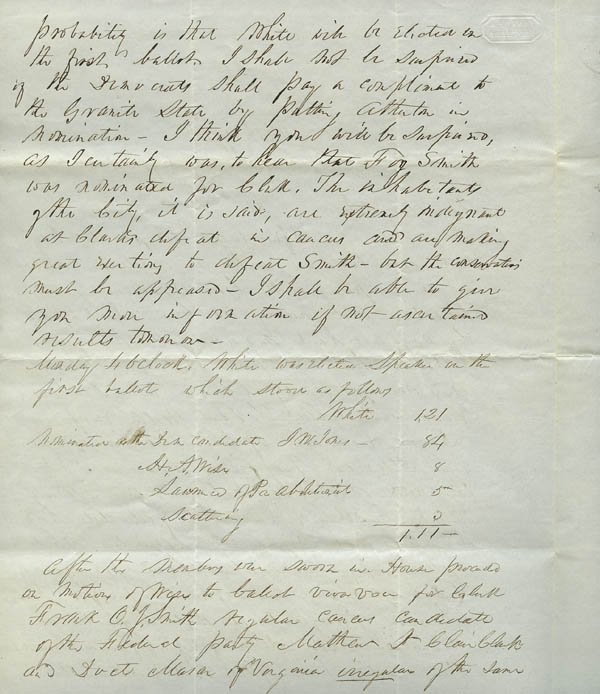 probability is that White will be elected on
the first ballot. I shall not be surprised
if the Democrats shall pay a compliment to
the Granite State by putting Atherton in
nomination – I think you will be surprised,
as I certainly was, to hear that F O J Smith
was nominated for Clerk. The inhabitants
of the City, it is said, are extremely indignant
at Clarke's defeat in caucus and are making
great exertions to defeat Smith – but the conservatives
must be appeased – I shall be able to give
you more information if not ascertained
results tomorrow –
Monday 4 oclock. White was elected Speaker on the
first ballot which stood as follows
White 121
Nomination Dem candidate J W Jones – 84
H. A. Wise 8
Lawrence of Pa Abolitionist 5
Scattering 3
After the members were sworn in House proceeded
on motion of Wise to ballot viva voce for Clerk
Frank O. J. Smith regular caucus candidate
of the Federal party Mathew St Clair Clark
and Mason of Virginia irregular of the same